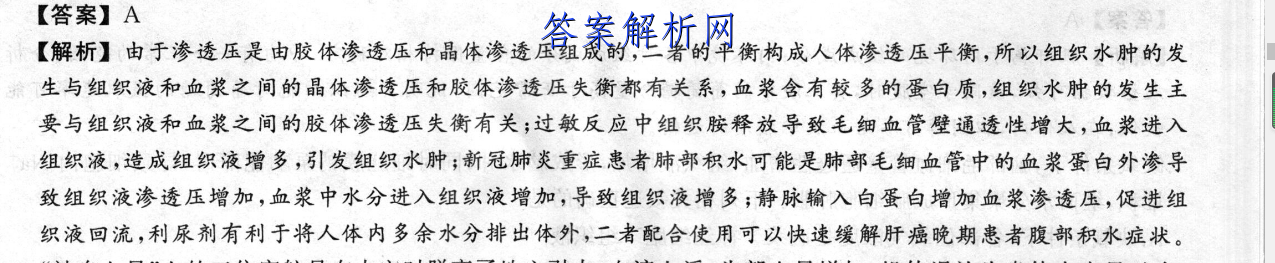 【答案】A
答案解析网
【解析】由于渗透压是由胶体渗透压和晶体渗透压组成的,二者的平衡构成人体渗透压平衡,所以组织水肿的发
生与组织液和血浆之间的晶体渗透压和胶体渗透压失衡都有关系,血浆含有较多的蛋白质,组织水肿的发生主
要与组织液和血浆之间的胶体渗透压失衡有关;过敏反应中组织胺释放导致毛细血管壁通透性增大,血浆进入
组织液,造成组织液增多,引发组织水肿;新冠肺炎重症患者肺部积水可能是肺部毛细血管中的血浆蛋白外渗导
致组织液渗透压增加,血浆中水分进入组织液增加,导致组织液增多;静脉输入白蛋白增加血浆渗透压,促进组
织液回流,利尿剂有利于将人体内多余水分排出体外,二者配合使用可以快速缓解肝癌晚期患者腹部积水症状。